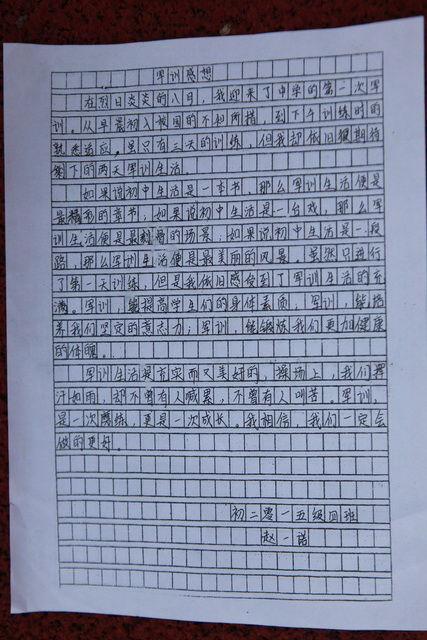 军训感想
在烈日炎炎的八月，我迎来了中学的第一次军
训。从早晨初入校园的不知所措，到下午训练时的
熟悉适应。虽只有三天的训练，但我却依旧很期待
剩下的两天军训生活。
如果说初中生活是一本书，那么军训生活便是
最精彩的章节；如果说初中生活是一台戏，那么军
训生活便是最刻骨的场景；如果说初中生活是一段
路，那么军训生活便是最美丽的风景。虽然只进行
了第一天训练，但是我依旧感受到了军训生活的充
满。军训，能提高学生们的身体素质；军训，能培
养我们坚定的意志力；军训，能锻炼我们更加健康
的体魄。
军训生活是充实而又美好的，操场上，我们挥
汗如雨，却不曾有人喊累，不曾有人叫苦。军训，
是一次磨练，更是一次成长。我相信，我们一定会
做的更好。
初二零一五级四班
赵一诺